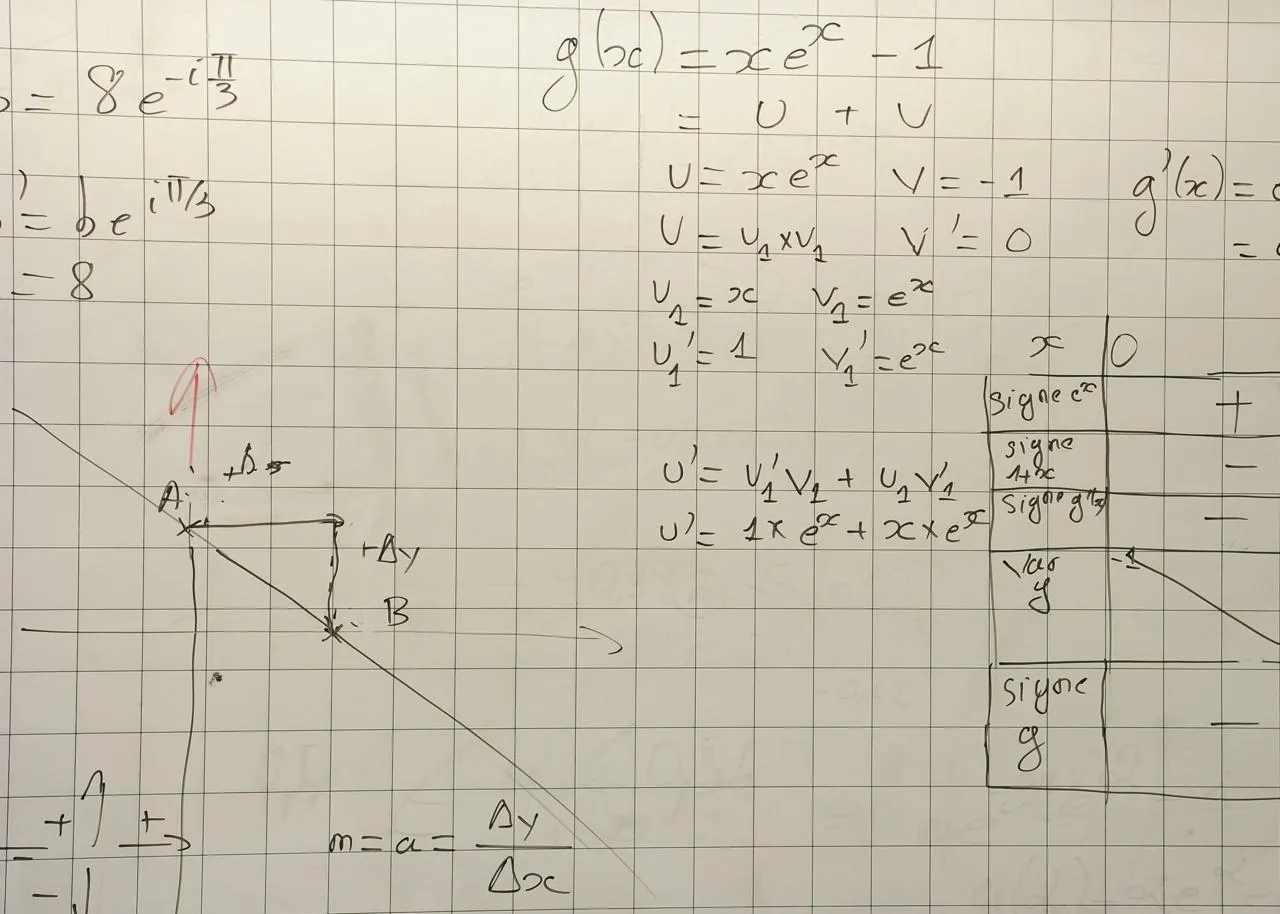 = 8 e^{-i π/3}
' = b e^{i π/3}
= 8
g(x) = x e^x - 1
= U + V
U = x e^x V = -1
U = U_1 × V_1 V' = 0
U_1 = x V_1 = e^x
U_1' = 1 V_1' = e^x
U' = U_1' V_1 + U_1 V_1'
U' = 1 × e^x + x × e^x
g'(x) =
=
x 0
signe e^x +
signe 1+x -
signe g'(x) -
Var g -1
signe g -
A
+Δ
-Δy
B
+ +
-
m = a = Δy / Δx